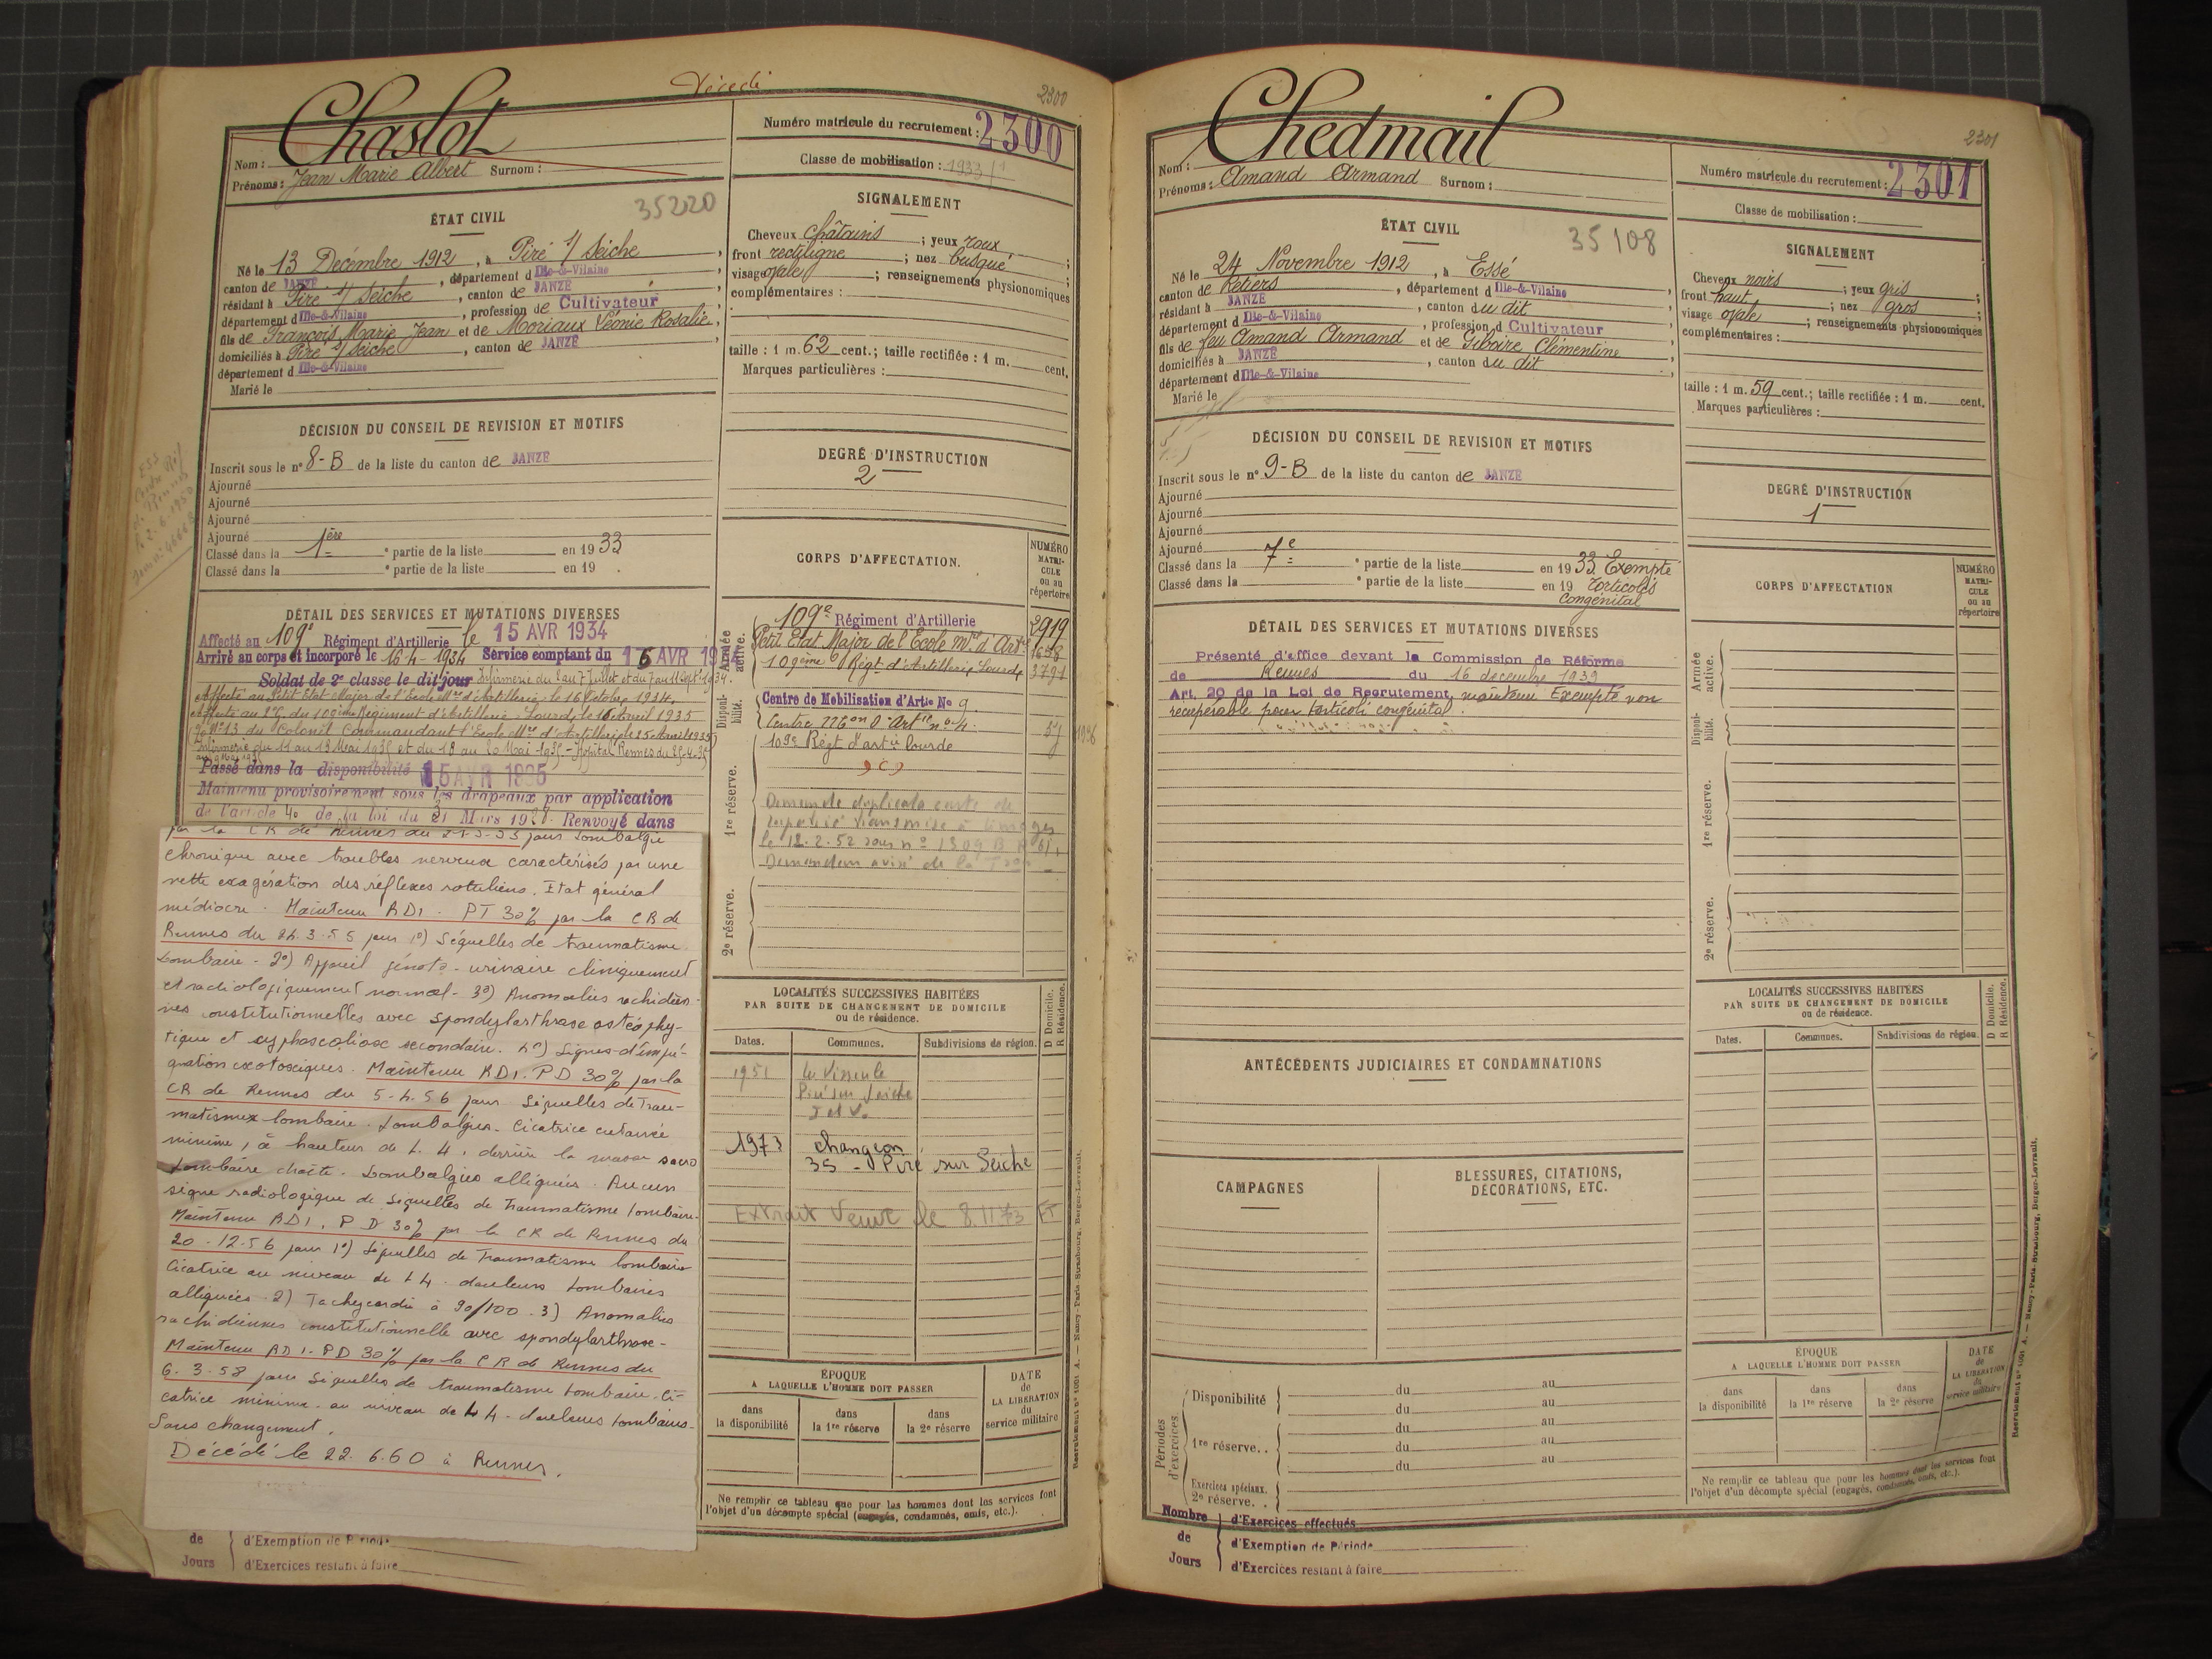 Décédé
2300
Nom : Chaslot
Prénoms : Jean Marie Albert Surnom :
Numéro matricule du recrutement : 2300
Classe de mobilisation : 1933/1
ÉTAT CIVIL
35220
Né le 13 Décembre 1912, à Piré s/ Seiche,
canton de JANZÉ, département d Ille-&-Vilaine,
résidant à Piré s/ Seiche, canton de JANZÉ,
département d Ille-&-Vilaine, profession de Cultivateur
fils de François Marie Jean et de Moriaux Léonie Rosalie,
domiciliés à Piré s/ Seiche, canton de JANZÉ,
département d Ille-&-Vilaine
Marié le
SIGNALEMENT
Cheveux châtains ; yeux roux ;
front rectiligne ; nez busqué ;
visage ovale ; renseignements physionomiques
complémentaires :
taille : 1 m. 62 cent.; taille rectifiée : 1 m. cent.
Marques particulières :
DÉCISION DU CONSEIL DE REVISION ET MOTIFS
Inscrit sous le n° 8-B de la liste du canton de JANZÉ
Ajourné
Ajourné
Ajourné
Ajourné
Classé dans la 1ère partie de la liste en 1933
Classé dans la e partie de la liste en 19 .
DEGRÉ D'INSTRUCTION
2
DÉTAIL DES SERVICES ET MUTATIONS DIVERSES
Affecté au 109e Régiment d'Artillerie le 15 AVR 1934
Arrivé au corps et incorporé le 16-4-1934 Service comptant du 15 AVR 1934.
Soldat de 2e classe le dit jour Infirmerie du 2 au 7 Juillet et du 7 au 11 Sept
Affecté au Petit Etat-Major de l'Ecole Mre d'Artillerie le 16 Octobre 1934.
du 109ème Régiment d'Artillerie Lourde le 16 Avril 1935
du Colonel Commandant l'Ecole Mre d'Artillerie le 25 Avril 1935
Infirmerie du 11 au 13 Mai 1935 et du 18 au 20 Mai 1935 - Hôpital Rennes du
Passé dans la disponibilité 15 AVR 1935
Maintenu provisoirement sous les drapeaux par application
de l'article 40 de la loi du 31 Mars 1928. Renvoyé dans
par la CR de Rennes du pour Lombalgie
chronique avec troubles nerveux caractérisés par une
nette exagération des réflexes rotuliens. Etat général
médiocre. Maintenu RD1. PT 30% par la CR de
Rennes du 24.3.55 pour 1°) Séquelles de traumatisme
Lombaire - 2°) Appareil génito-urinaire cliniquement
et radiologiquement normal - 3°) Anomalies rachidien-
nes constitutionnelles avec spondylarthrose ostéophy-
tique et cyphoscoliose secondaire. 4°) Signes d'impré-
gnation exotoxiques. Maintenu RD1. PD 30% par la
CR de Rennes du 5-4.56 pour Séquelles de Trau-
matismex lombaire. Lombalgies. Cicatrice cutanée
minime, à hauteur de L.4, derrière la masse sacro
Lombaire droite. Lombalgies alléguées. Aucun
signe radiologique de séquelles de Traumatisme lombaire.
Maintenu RD1. PD 30% par la CR de Rennes du
20.12.56 pour 1°) Séquelles de Traumatisme lombaire
Cicatrice au niveau de L4. douleurs Lombaires
alléguées. 2) Tachycardie à 90/100 - 3) Anomalies
rachidiennes constitutionnelle avec spondylarthrose -
Maintenu RD1. PD 30% par la CR de Rennes du
6.3.58 pour Séquelles de traumatisme Lombaire. Ci-
catrice minime au niveau de L4. douleurs Lombaires.
Sans changement.
Décédé le 22.6.60 à Rennes.
de
Jours
d'Exemption de Période
d'Exercices restant à faire
CORPS D'AFFECTATION.
NUMÉRO MATRICULE ou au répertoire
Armée active.
109e Régiment d'Artillerie 2919
Petit Etat Major de l'Ecole Mre d'Artie 1658
109ème Régt d'Artillerie Lourde 3791
Disponibilité.
Centre de Mobilisation d'Artie No 9.
Centre Mon d'Artie n° 4. 57 1936
109e Régt d'artie lourde
1re réserve.
Demande duplicata carte de
transmise à Limoges
le 12.2.52 sous n° 1309
2e réserve.
LOCALITÉS SUCCESSIVES HABITÉES
PAR SUITE DE CHANGEMENT DE DOMICILE
ou de résidence.
D Domicile.
R Résidence.
Dates. Communes. Subdivisions de région.
1951
Piré sur Seiche
I et V.
1973 Changeon
35 - Piré sur Seiche
Extrait Veuve le 8.11.73 FT
ÉPOQUE
A LAQUELLE L'HOMME DOIT PASSER
dans la disponibilité
dans la 1re réserve
dans la 2e réserve
DATE de LA LIBÉRATION du service militaire
Ne remplir ce tableau que pour les hommes dont les services font
l'objet d'un décompte spécial (engagés, condamnés, omis, etc.).
2301
Nom : Chedmail
Prénoms : Amand Armand Surnom :
Numéro matricule du recrutement : 2301
Classe de mobilisation :
ÉTAT CIVIL
35108
Né le 24 Novembre 1912, à Essé,
canton de Retiers, département d Ille-&-Vilaine,
résidant à JANZÉ, canton du dit,
département d Ille-&-Vilaine, profession d Cultivateur
fils de feu Amand Armand et de Giboire Clémentine,
domiciliés à JANZÉ, canton du dit,
département d Ille-&-Vilaine
Marié le
SIGNALEMENT
Cheveux noirs ; yeux gris ;
front haut ; nez gros ;
visage ovale ; renseignements physionomiques
complémentaires :
taille : 1 m. 59 cent.; taille rectifiée : 1 m. cent.
Marques particulières :
DÉCISION DU CONSEIL DE REVISION ET MOTIFS
Inscrit sous le n° 9-B de la liste du canton de JANZÉ
Ajourné
Ajourné
Ajourné
Ajourné
Classé dans la 7e partie de la liste en 1933 Exempté
Classé dans la e partie de la liste en 19 Torticolis
Congénital
DEGRÉ D'INSTRUCTION
1
DÉTAIL DES SERVICES ET MUTATIONS DIVERSES
Présenté d'office devant la Commission de Réforme
de Rennes du 16 décembre 1939
Art. 20 de la Loi de Recrutement, maintenu Exempté non
récupérable pour torticoli congénital.
CORPS D'AFFECTATION
NUMÉRO MATRICULE ou au répertoire
Armée active.
Disponibilité.
1re réserve.
2e réserve.
ANTÉCÉDENTS JUDICIAIRES ET CONDAMNATIONS
CAMPAGNES
BLESSURES, CITATIONS,
DÉCORATIONS, ETC.
LOCALITÉS SUCCESSIVES HABITÉES
PAR SUITE DE CHANGEMENT DE DOMICILE
ou de résidence.
D Domicile.
R Résidence.
Dates. Communes. Subdivisions de région.
Périodes d'exercices.
Disponibilité du au
du au
1re réserve. . du au
du au
du au
Exercices spéciaux.
2e réserve. .
ÉPOQUE
A LAQUELLE L'HOMME DOIT PASSER
dans la disponibilité
dans la 1re réserve
dans la 2e réserve
DATE de LA LIBÉRATION du service militaire
Ne remplir ce tableau que pour les hommes dont les services font
l'objet d'un décompte spécial (engagés, condamnés, omis, etc.).
Nombre
de
Jours
d'Exercices effectués
d'Exemption de Période
d'Exercices restant à faire